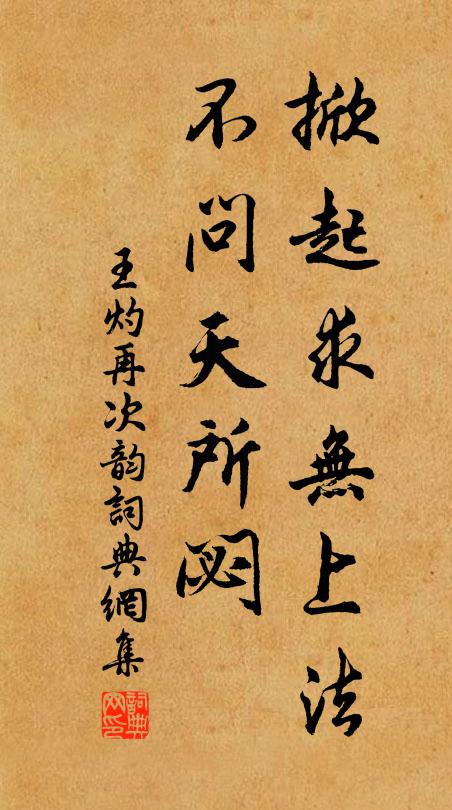 掀起求無上法
不問天所閟
王灼再次韵詞典網集
詞典网印